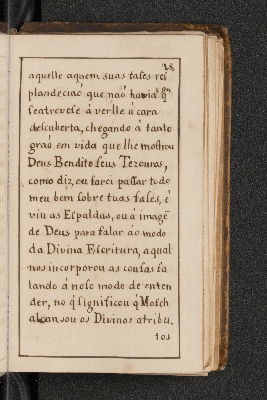 28
aquelle aquem suas tafes res
plandeciaó que naõ havia q̃m
seatrevese á verlle á cara
descuberta, chegando á tanto
graó em vida que lhe mostrou
Deus Bendito seus Tezouros,
como diz, eu farei passar todo
meu bem sobre tuas fases, é
viu as Espaldas, ou á imagẽ
de Deus para falar áo modo
da Divina Escritura, aqual
nos incorporou as cousas fa
lando á noso modo de enten
der, no q̃ significou q̃ Moseh
alcansou os Divinos atribu.
tos